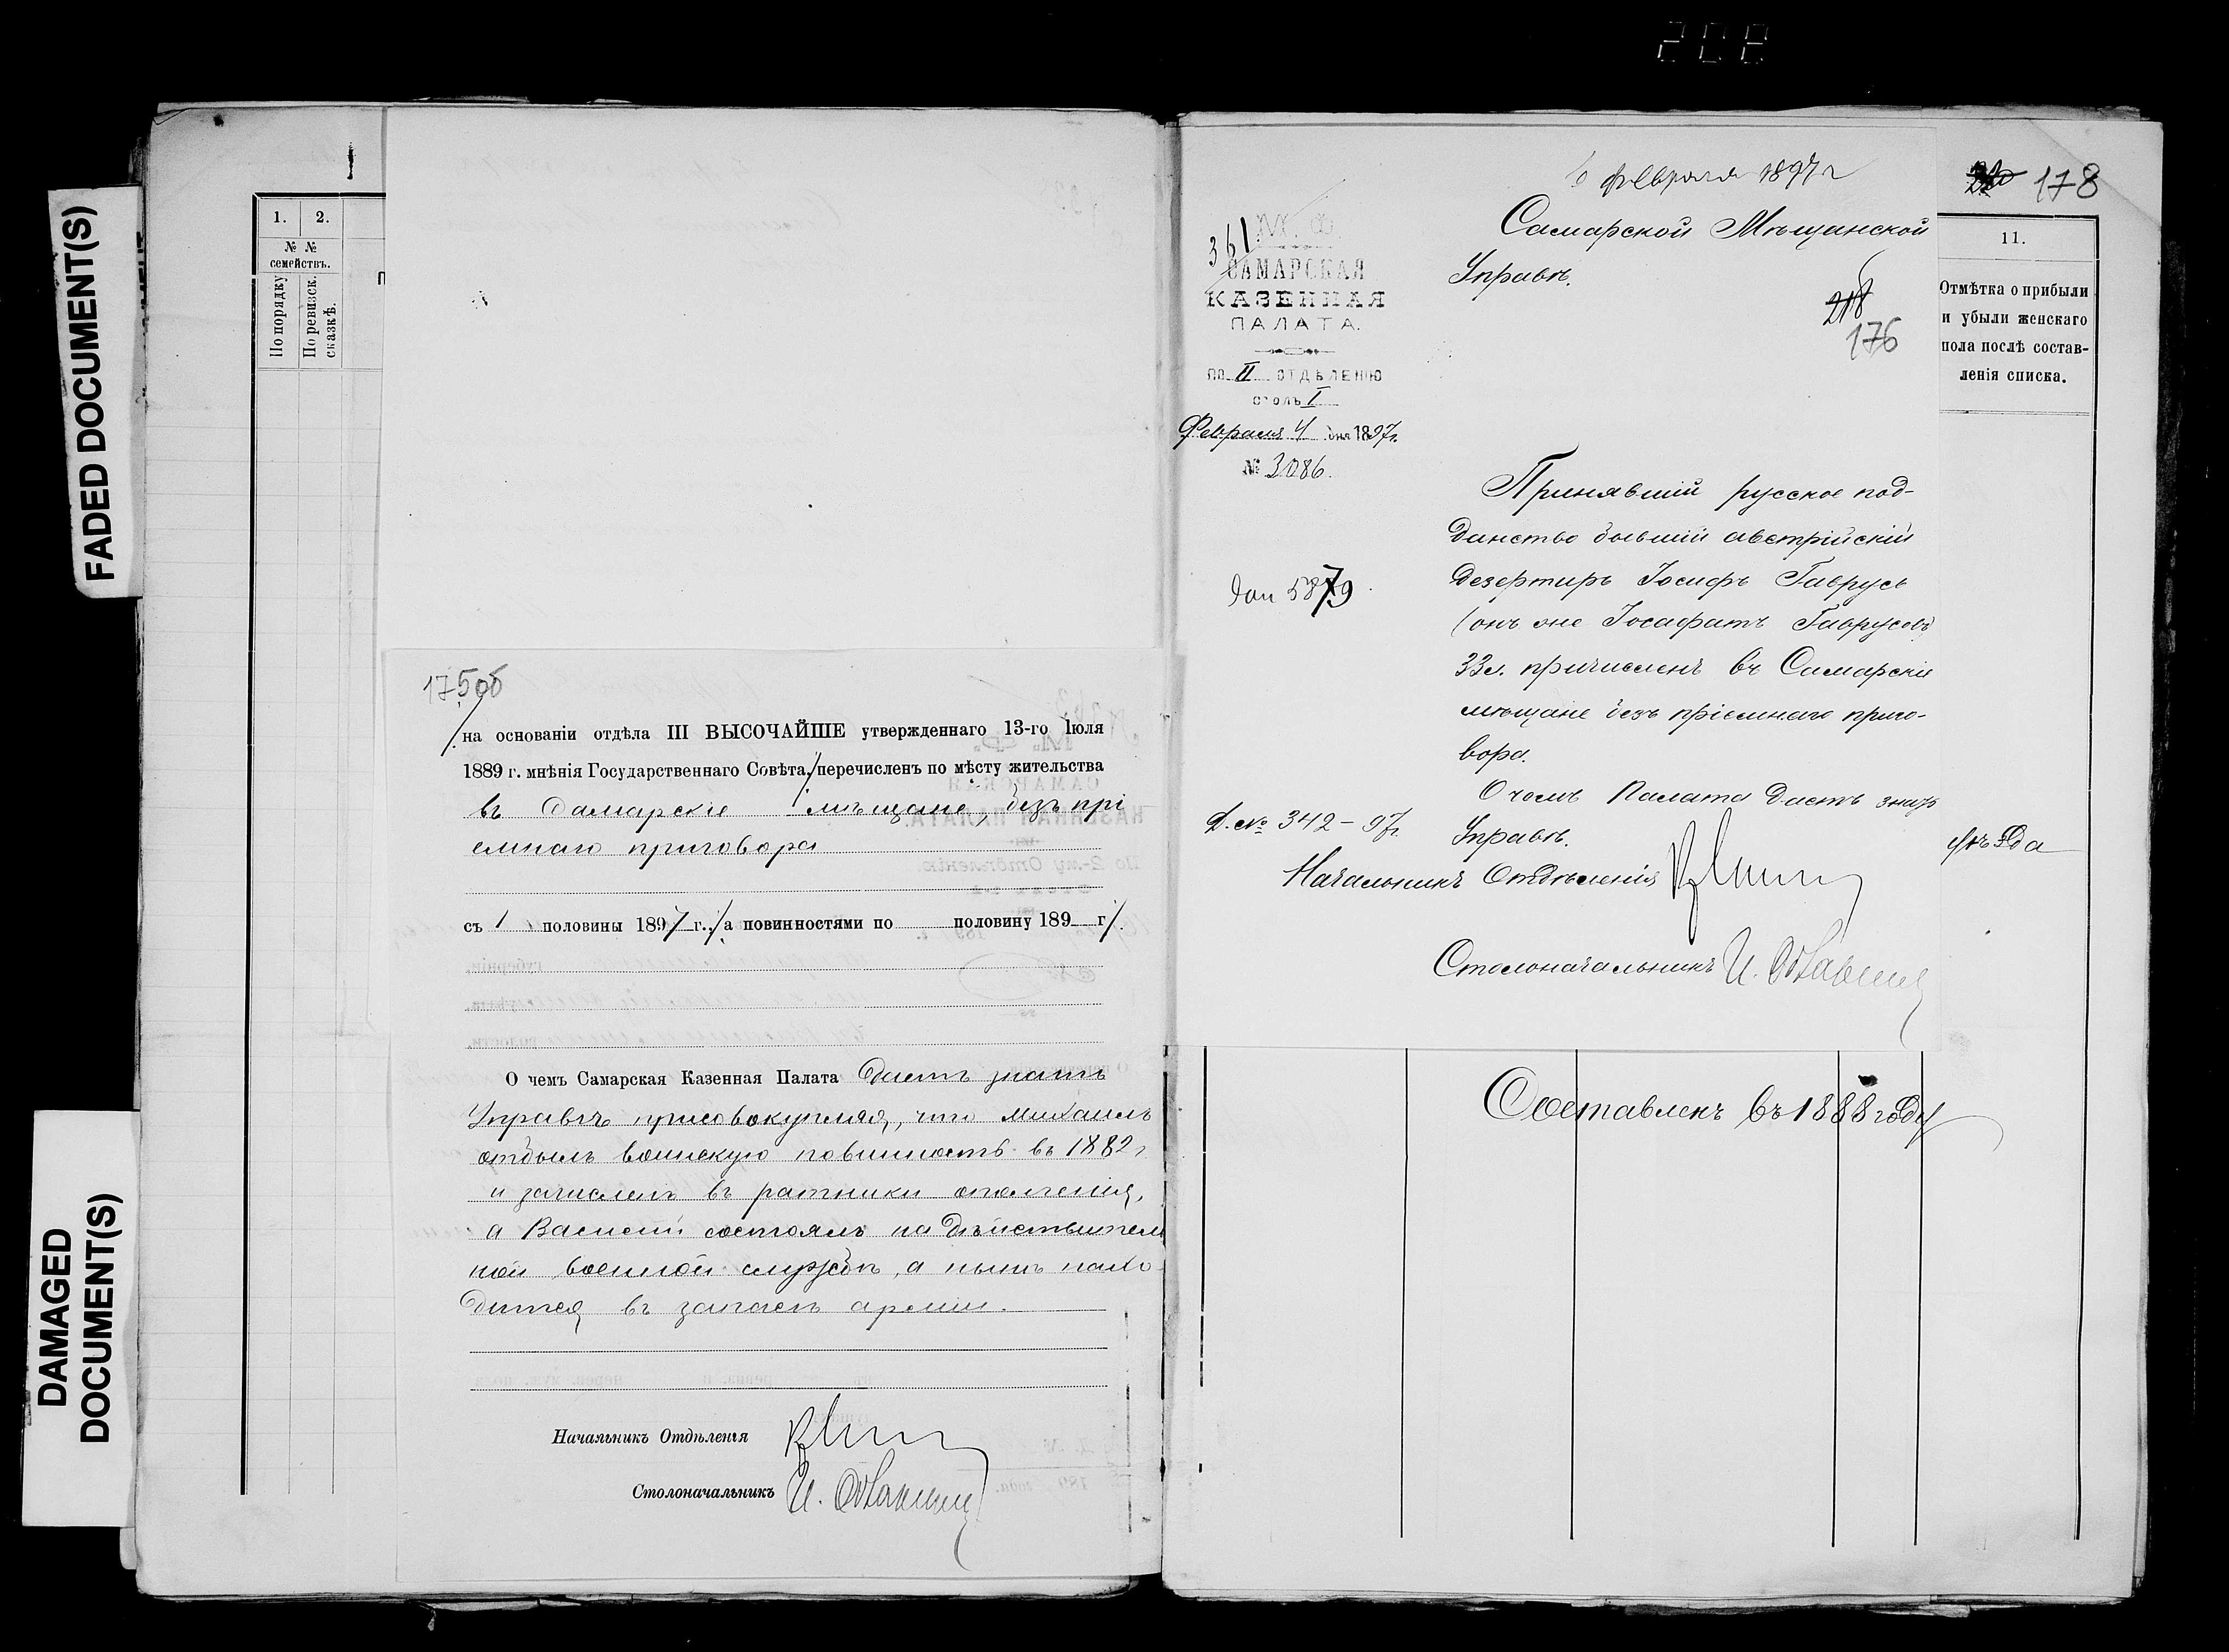 202
FADED DOCUMENT(S)
DAMAGED
DOCUMENT(S)
1. 2.
№ №
семействъ.
По порядку
По ревизск.
сказкѣ.
175об
на основаніи отдѣла III ВЫСОЧАЙШЕ утвержденнаго 13-го Іюля
1889 г. мнѣнія Государственнаго Совѣта, перечисленъ по мѣсту жительства
въ Самарскіе мѣщане, безъ прі
емнаго приговора
съ 1 половины 1897 г., а повинностями по половину 189 г.
О чемъ Самарская Казенная Палата даетъ знать
Управѣ присовокупляя, что Михаилъ
отбылъ воинскую повинность въ 1882 г
и зачисленъ въ ратники ополченія,
а Василій состоялъ на дѣйствитель
ной военной службѣ, а нынѣ нахо
дится въ запасѣ арміи.
Начальникъ Отдѣленія
Столоначальникъ
6 февраля 1897 г
178
361
М. Ф.
САМАРСКАЯ
КАЗЕННАЯ
ПАЛАТА.
по II ОТДѢЛЕНІЮ
столъ I
Февраля 4 дня 1897 г.
№ 3086.
Самарской Мѣщанской
Управѣ.
218
176
11.
Отмѣтка о прибыли
и убыли женскаго
пола послѣ состав-
ленія списка.
Принявшій русское под-
данство бывшій австрійскій
дезертиръ Іосифъ Гаврусь
(онъ же Іосафатъ Гаврусовъ
33 л. причисленъ въ Самарскіе
мѣщане безъ пріемнаго приго-
вора.
О чемъ Палата даетъ знать
Управѣ.
Д. № 342-97 г.
Начальникъ Отдѣленія
Столоначальникъ
Составленъ въ 1888 году